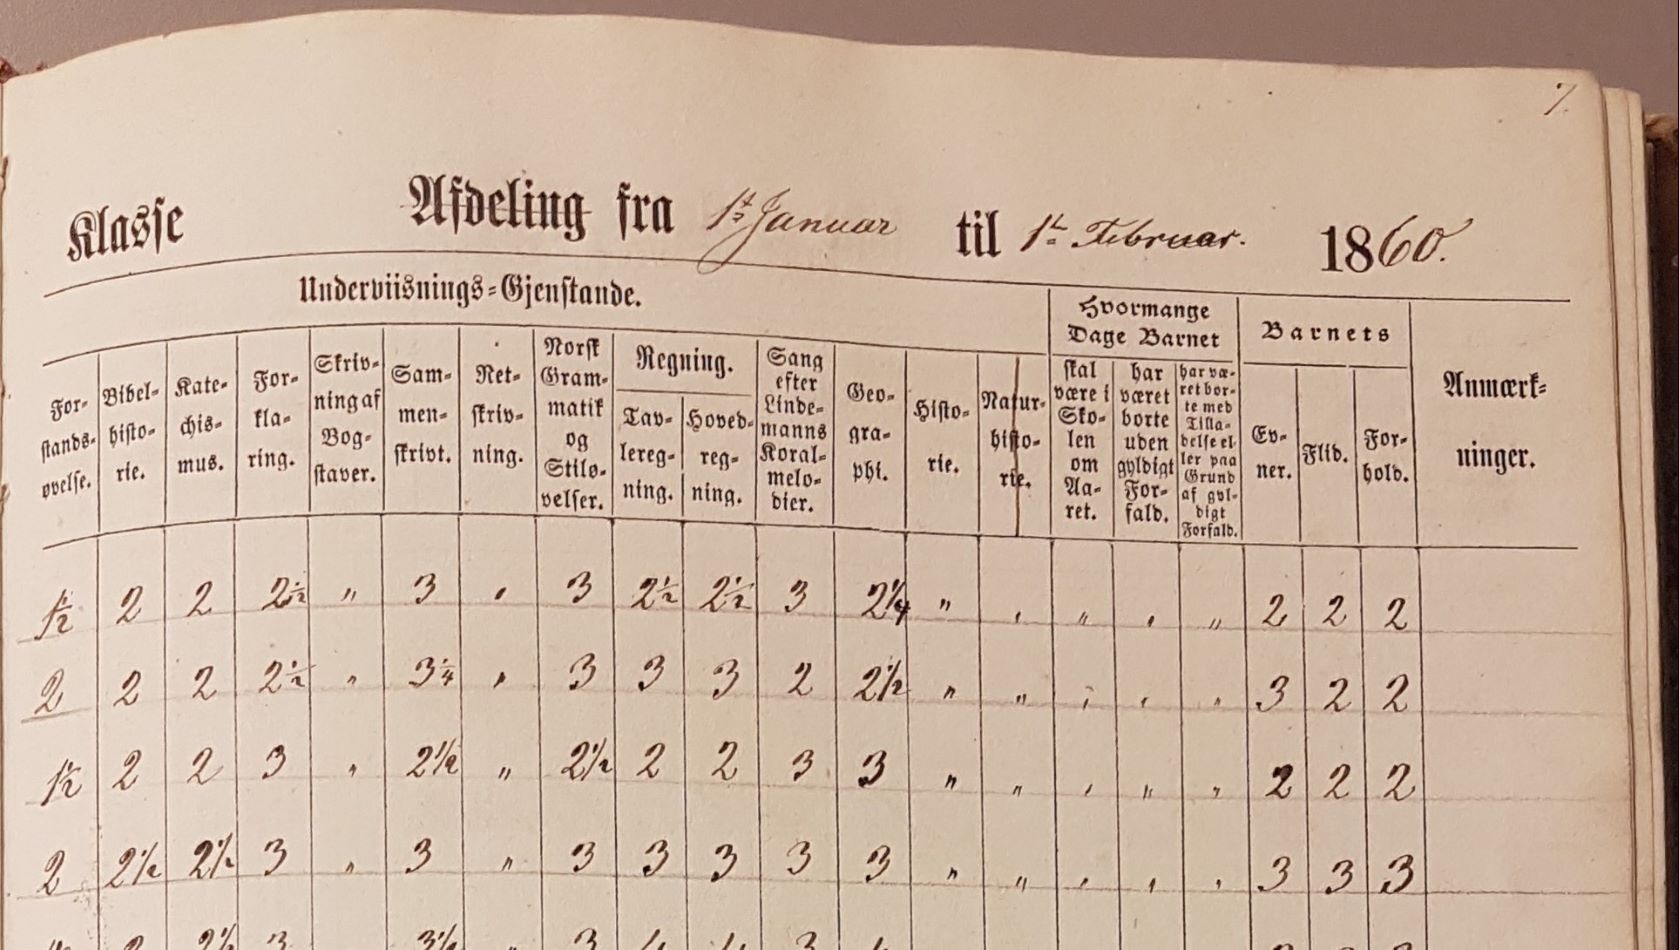 7.
Klasse Afdeling fra 1ste Januar til 1ste Februar. 1860.
Underviisnings-Gjenstande.
Hvormange
Dage Barnet
Barnets
Anmærk-
ninger.
For-
stands-
øvelse.
Bibel-
histo-
rie.
Kate-
chis-
mus.
For-
kla-
ring.
Skriv-
ning af
Bog-
staver.
Sam-
men-
skrivt.
Ret-
skriv-
ning.
Norsk
Gram-
matik
og
Stilø-
velser.
Regning.
Tav-
lereg-
ning.
Hoved-
reg-
ning.
Sang
efter
Linde-
manns
Koral-
melo-
dier.
Geo-
gra-
phi.
Histo-
rie.
Natur-
histo-
rie.
skal
være i
Sko-
len
om
Aa-
ret.
har
været
borte
uden
gyldigt
For-
fald.
har væ-
ret bor-
te med
Tilla-
delse el-
ler paa
Grund
af gyl-
digt
Forfald.
Ev-
ner.
Flid.
For-
hold.
1½ 2 2 2½ " 3 " 3 2½ 2½ 3 2¼ " " " " " 2 2 2
2 2 2 2½ " 3¼ " 3 3 3 2 2½ " " " " " 3 2 2
1½ 2 2 3 " 2½ " 2½ 2 2 3 3 " " " " " 2 2 2
2 2½ 2½ 3 " 3 " 3 3 3 3 3 " " " " " 3 3 3